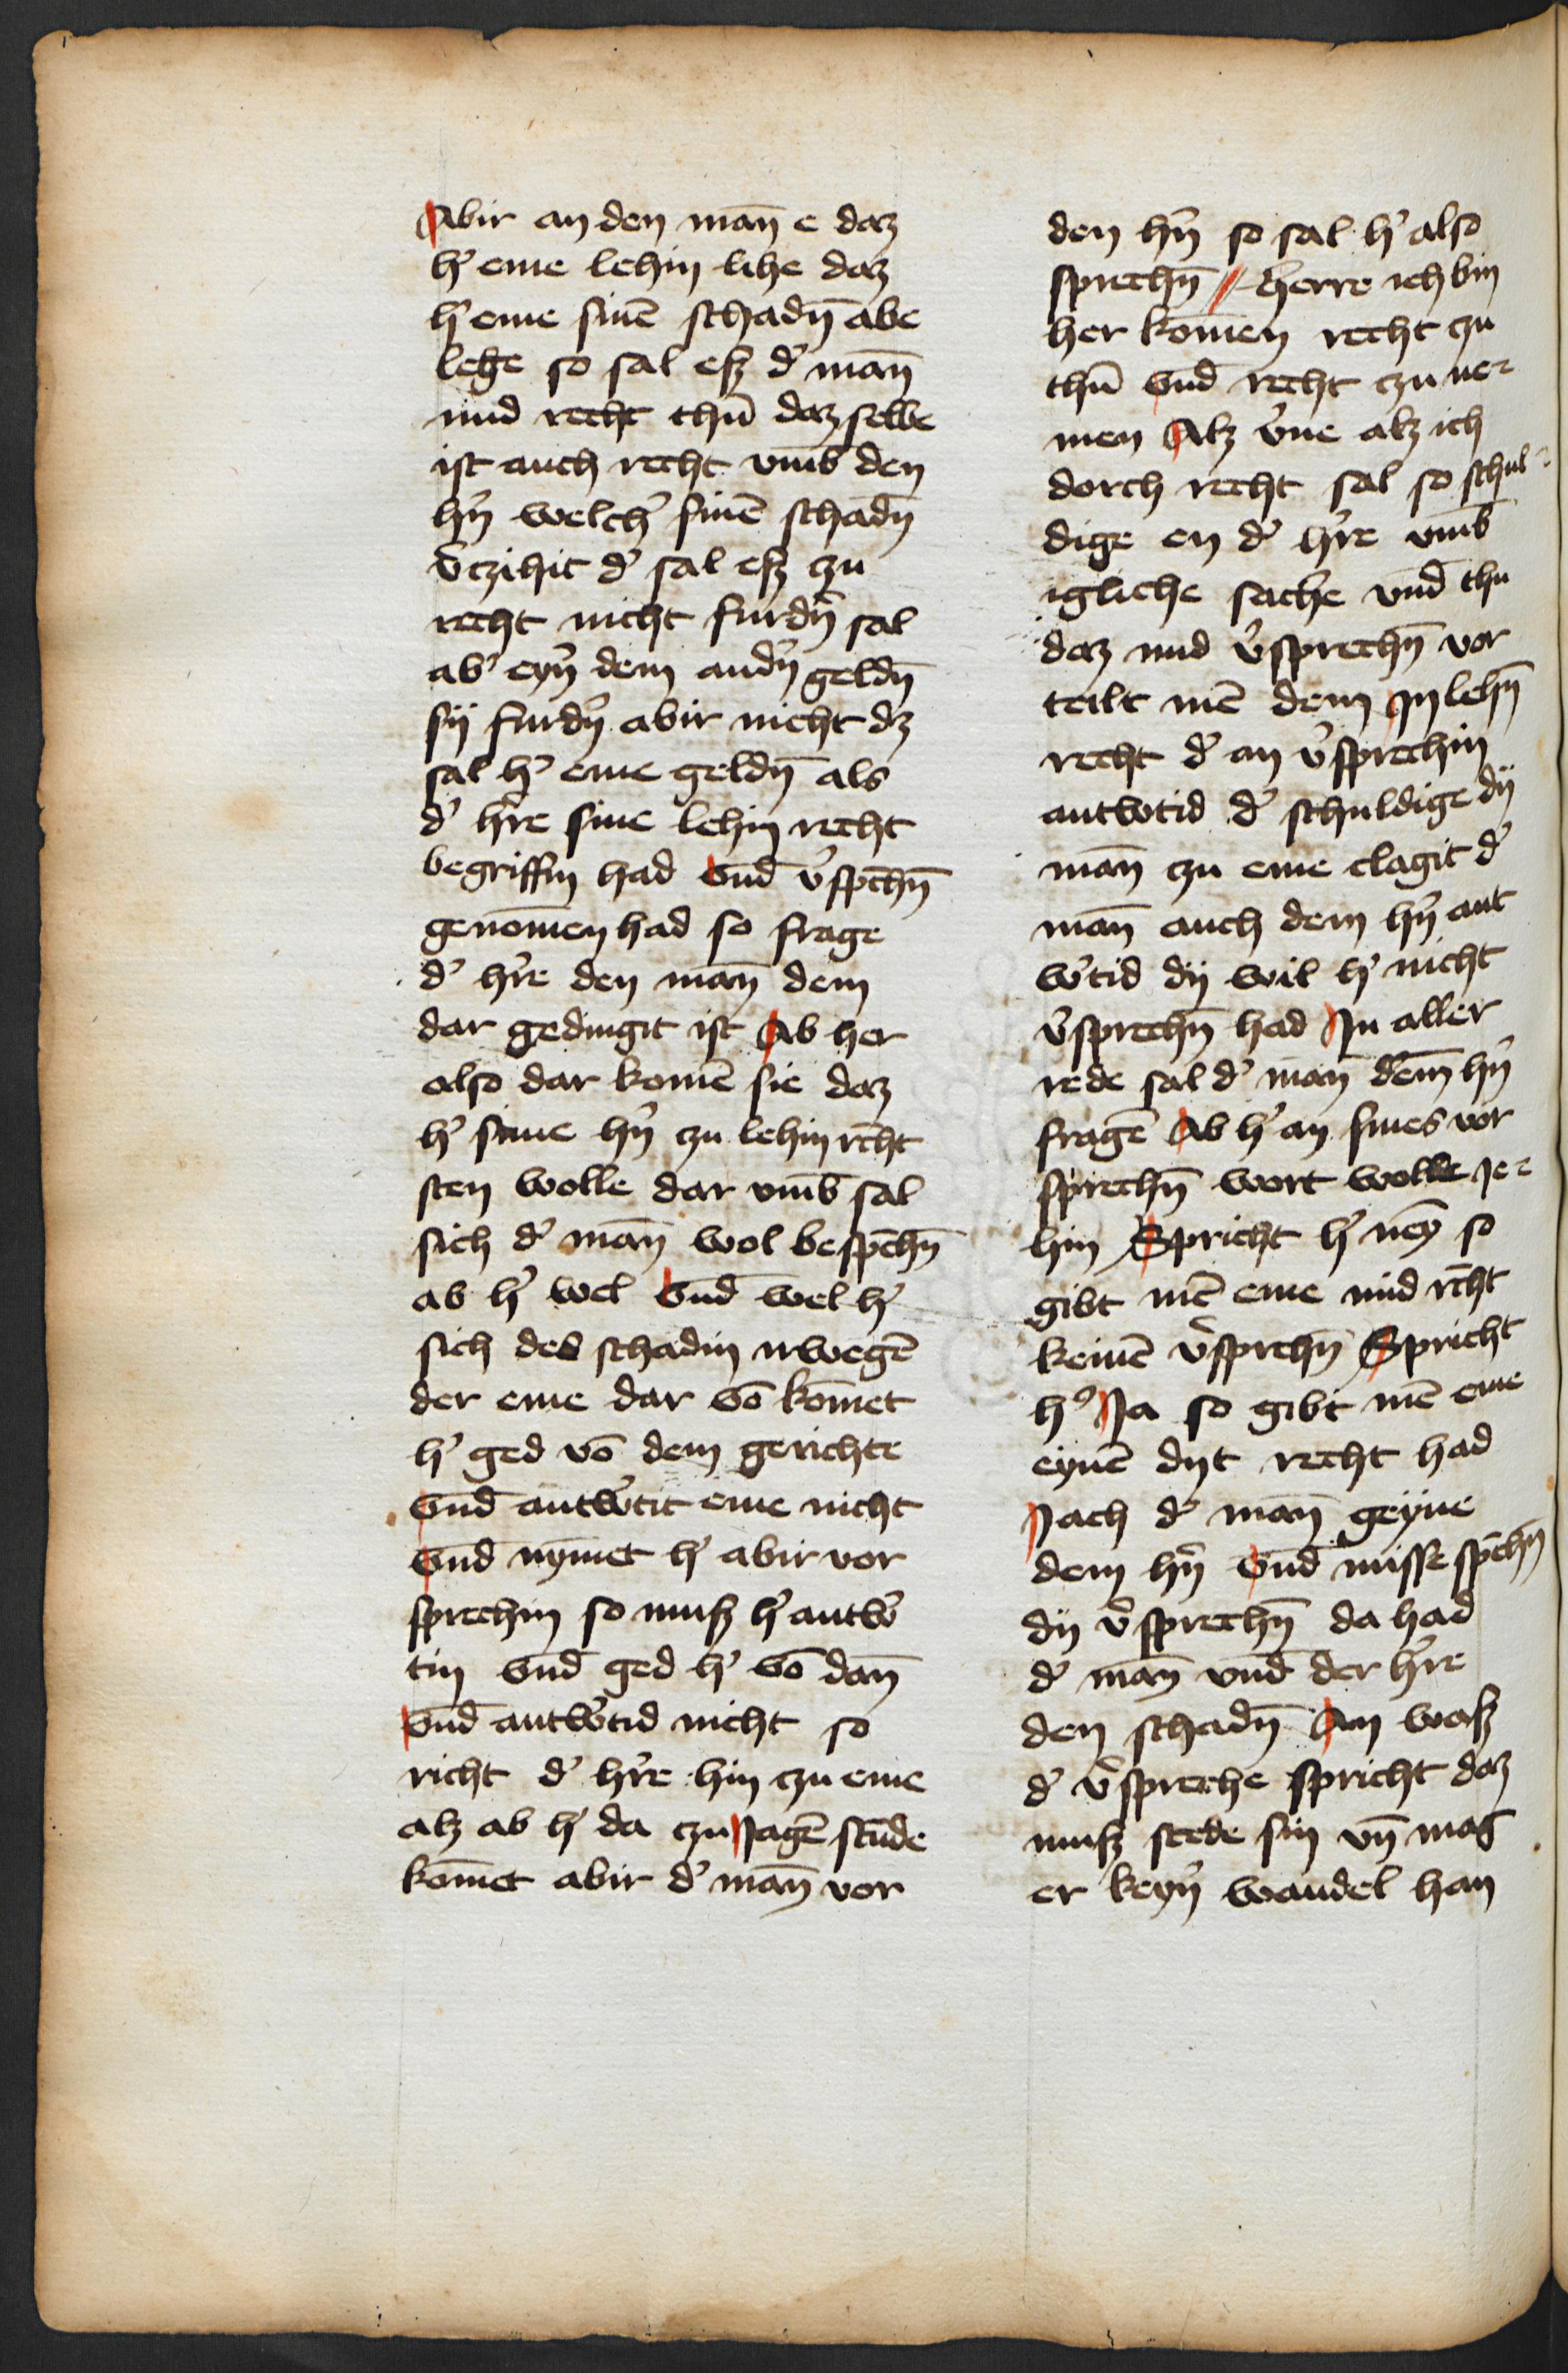 Abir an den man̄ e daz
h' eme lehin lihe daz
h' eme sinē schadn̄ abe
lege so sal esz d' man̄
mid recht thū daz selbe
ist auch recht vm̄b den
h'n welch' sinē schadn̄
v'czihit d' sal esz czu
recht nicht furdn̄ sal
ab' eyn' dem andn̄ geldn̄
sij furdn̄ abir nicht dz
sal h' eme geldn̄ als
d' h're sine lehin recht
begriffin had vnd̄ v'spchn̄
genom̄en had so frage
d' h're den man̄ dem
dar gedingit ist Ab her
also dar komē sie daz
h' sime h'n czu lehin rcht
sten wolle dar vm̄b sal
sich d' man̄ wol bespchn̄
ab h' wel vnd̄ wel h'
sich des schadin irwegē
der eme dar vō kom̄et
h' ged vō dem gerichte
vnd̄ antw'tit eme nicht
vnd̄ nym̄et h' abir vor
sprechin so musz h' antw'
tin vnd̄ ged h' vō dan̄
vnd̄ antw'tid nicht so
richt d' h're hin czu eme
alz ab h' da czu Jagē stūde
kom̄et abir d' man̄ vor
den h'n so sal h' also
sprechn̄ herre ich bin
her kom̄en recht czu
thū vnd̄ recht czu ne⸗
men Alz v'ne alz ich
dorch recht sal so schul⸗
dige en d' h're vm̄b
igliche sache vnd̄ thu
daz mid v'sprechn̄ vor
teilt mē dem Jn lehn̄
recht d' an v'sprechin
antw'tid d' schuldige dij
man̄ czu eme clagit d'
man̄ auch dem h'n ant
w'tid dij wil h' nicht
v'sprechn̄ had Jn aller
rede sal d' man̄ dem̄ h'n
fragē Ab h' an sines vor
sprechn̄ wort wolle Je⸗
hin Spricht h' ney so
gibt mē eme mid rcht
keinē v'sprchn̄ Spricht
h' Ja so gibt mē eme
eynē dyt recht had
Jach d' man̄ geyne
dem h'n vnd̄ misse spchn̄
dij v'sprechn̄ da had
d' man̄ vnd̄ der h're
den schadn̄ An wasz
d' v'spreche spricht daz
musz stede sin vn̄ mag
er keyn' wandel han